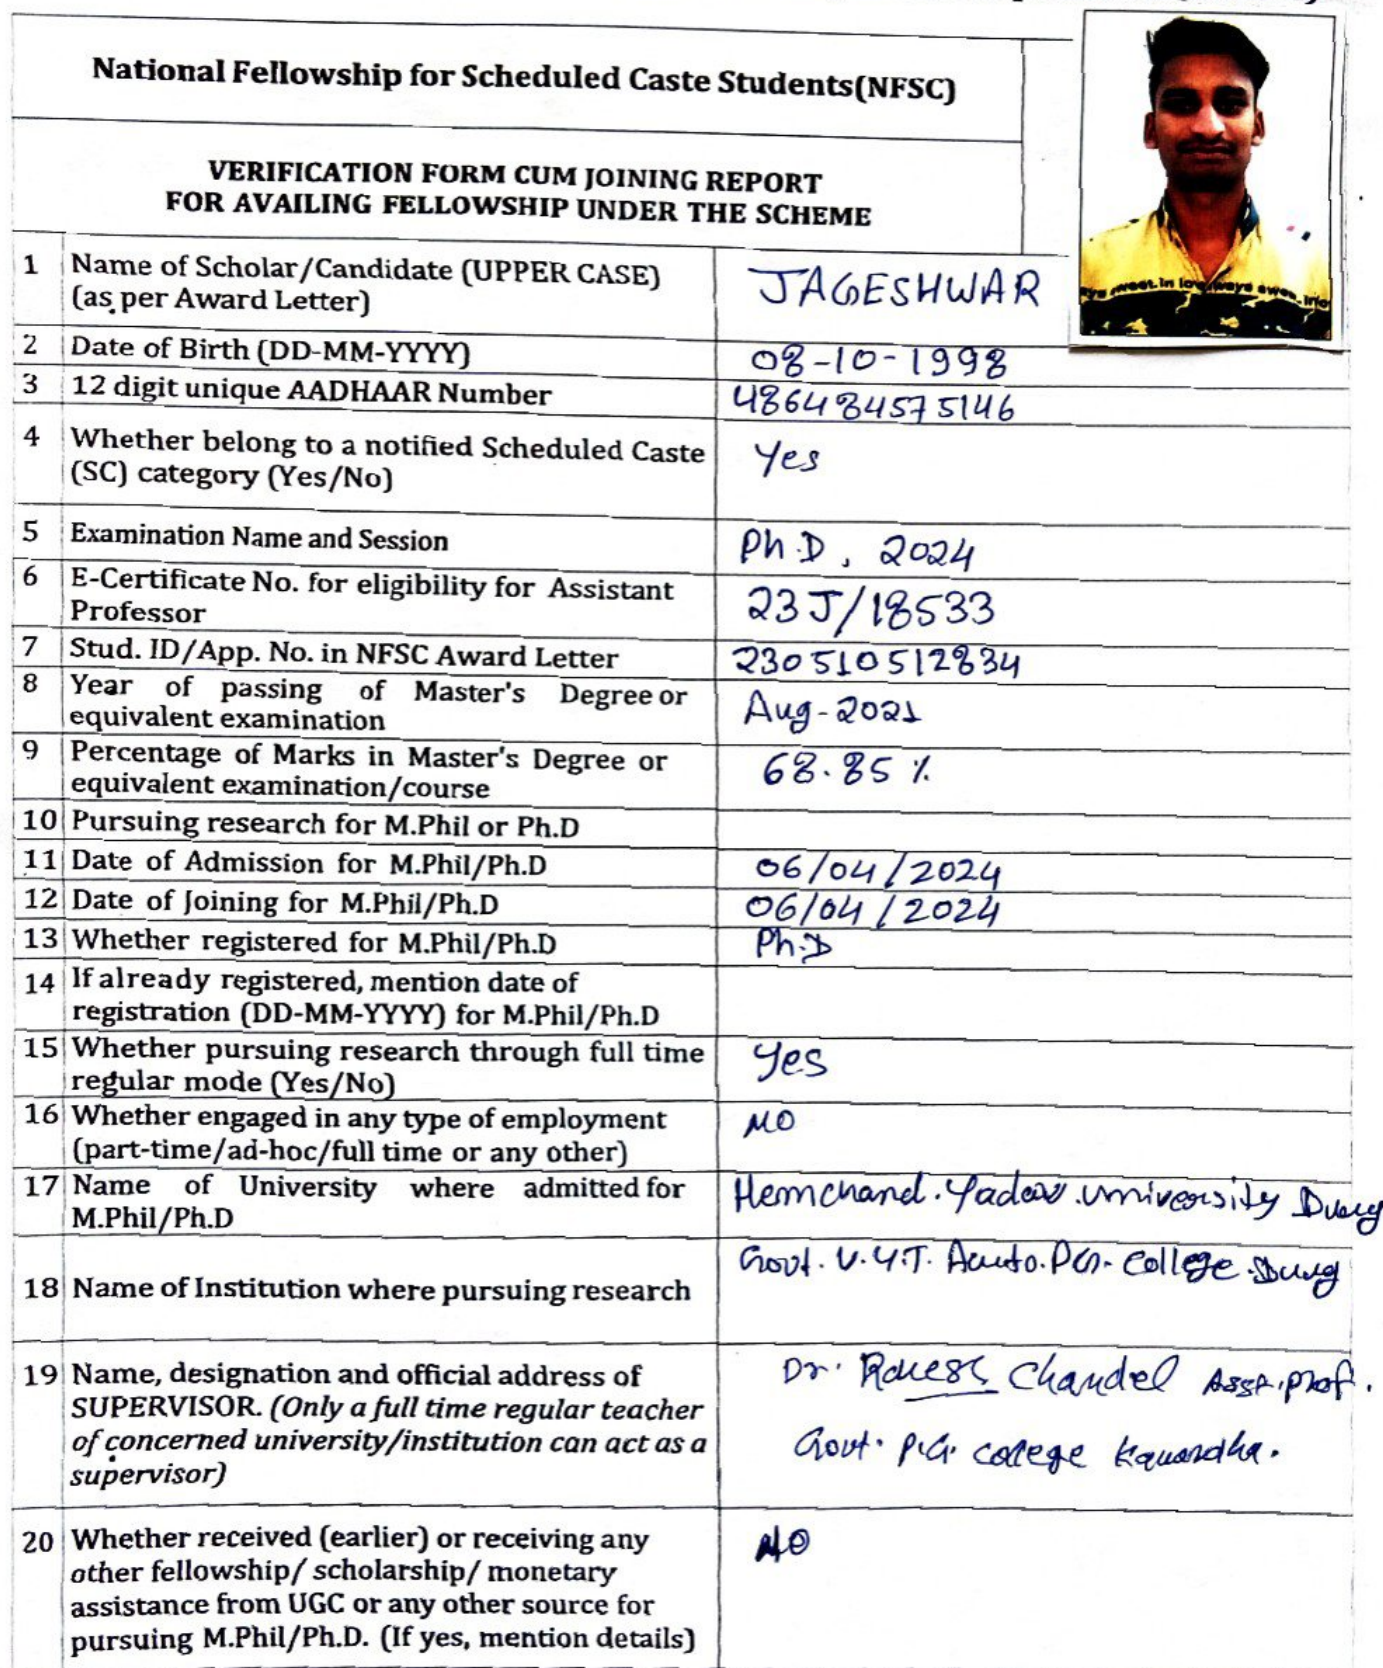 National Fellowship for Scheduled Caste Students(NFSC)
VERIFICATION FORM CUM JOINING REPORT
FOR AVAILING FELLOWSHIP UNDER THE SCHEME
1 Name of Scholar/Candidate (UPPER CASE) JAGESHWAR
(as per Award Letter)
2 Date of Birth (DD-MM-YYYY) 08-10-1998
3 12 digit unique AADHAAR Number 486484575146
4 Whether belong to a notified Scheduled Caste Yes
(SC) category (Yes/No)
5 Examination Name and Session Ph.D, 2024
6 E-Certificate No. for eligibility for Assistant 23J/18533
Professor
7 Stud. ID/App. No. in NFSC Award Letter 230510512834
8 Year of passing of Master's Degree or Aug-2021
equivalent examination
9 Percentage of Marks in Master's Degree or 68.85 %
equivalent examination/course
10 Pursuing research for M.Phil or Ph.D
11 Date of Admission for M.Phil/Ph.D 06/04/2024
12 Date of Joining for M.Phil/Ph.D 06/04/2024
13 Whether registered for M.Phil/Ph.D Ph.D
14 If already registered, mention date of
registration (DD-MM-YYYY) for M.Phil/Ph.D
15 Whether pursuing research through full time Yes
regular mode (Yes/No)
16 Whether engaged in any type of employment NO
(part-time/ad-hoc/full time or any other)
17 Name of University where admitted for Hemchand. Yadav. University Durg
M.Phil/Ph.D
Govt. V.Y.T. Auto. P.G. College. Durg
18 Name of Institution where pursuing research
19 Name, designation and official address of Dr. Rakesh Chandel Asst. Prof.
SUPERVISOR. (Only a full time regular teacher
of concerned university/institution can act as a Govt. P.G. College Kawardha.
supervisor)
20 Whether received (earlier) or receiving any NO
other fellowship/ scholarship/ monetary
assistance from UGC or any other source for
pursuing M.Phil/Ph.D. (If yes, mention details)